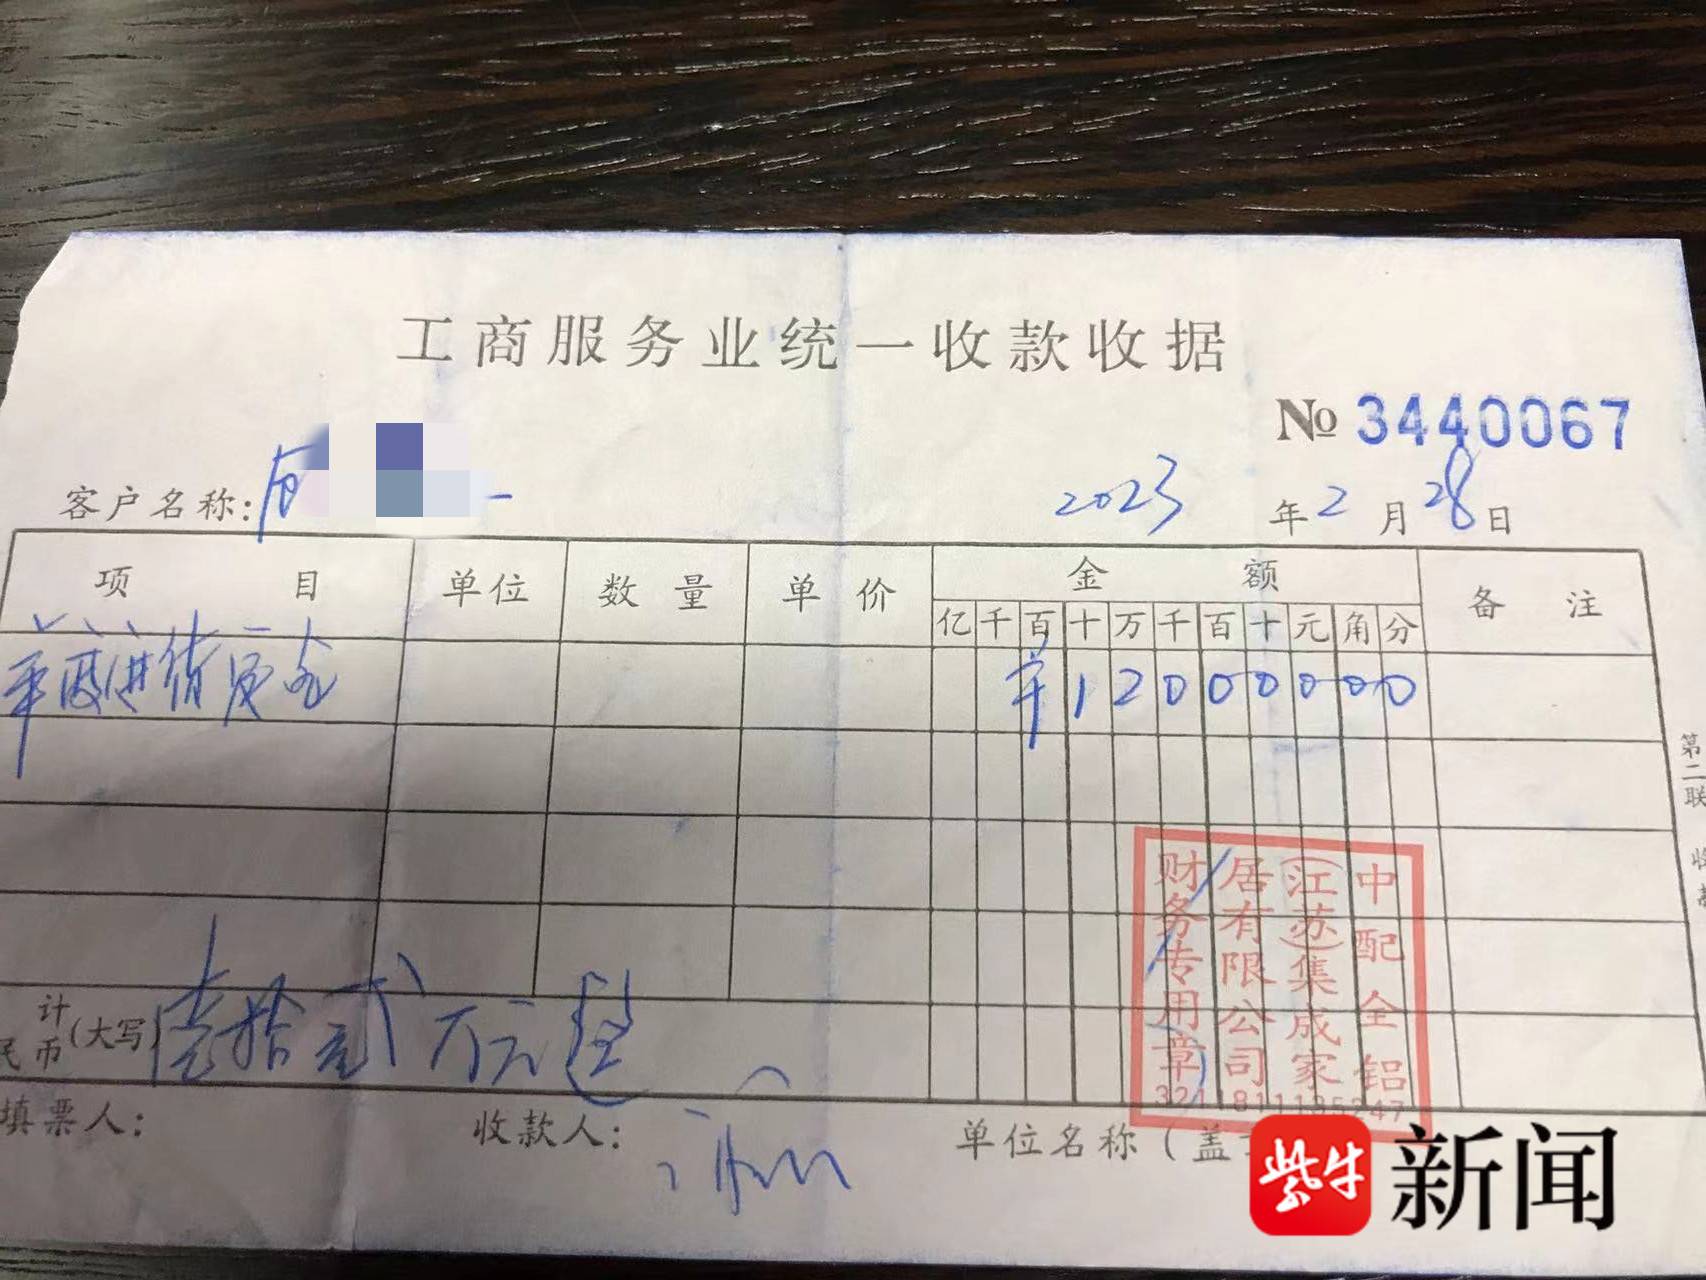 工商服务业统一收款收据
№ 3440067
客户名称:
2023年2月28日
项目 单位 数量 单价 金额 备注
亿 千 百 十 万 千 百 十 元 角 分
年度进货质金 ¥120000000
计
民币(大写)壹拾贰万元整
填票人: 收款人: 单位名称(盖
第二联
收
中配全铝
(江苏)集成家
居有限公司
财务专用章
紫牛新闻